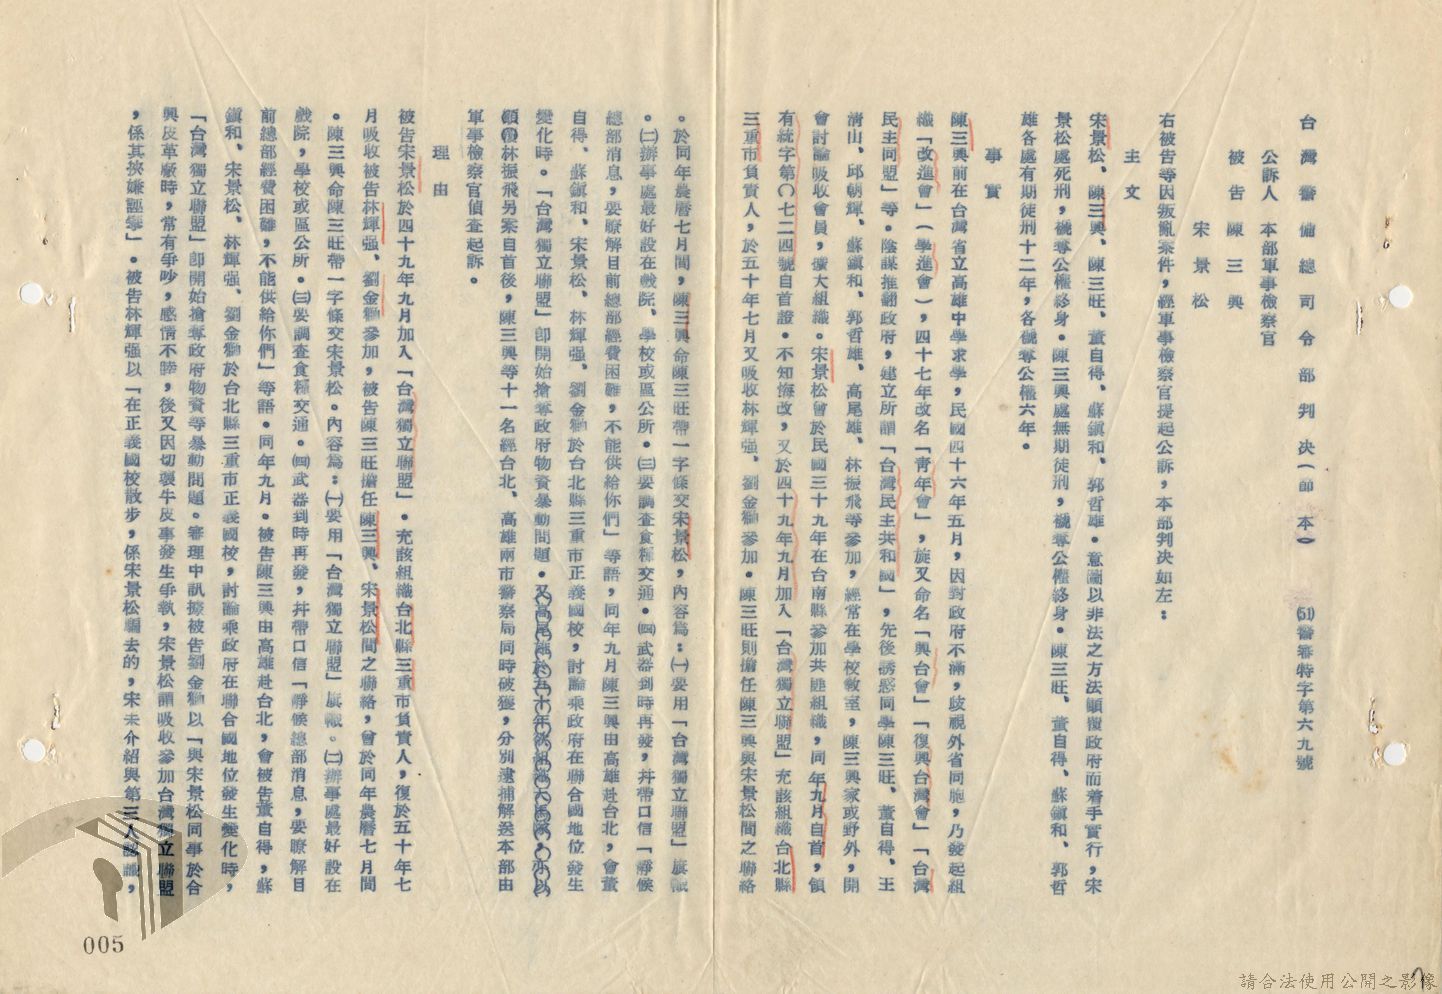 台灣警備總司令部判決(節本)
(51)警審特字第六九號
公訴人 本部軍事檢察官
被告 陳三興
宋景松
右被告等因叛亂案件,經軍事檢察官提起公訴,本部判決如左:
主文
宋景松、陳三興、陳三旺、董自得、蘇鎮和、郭哲雄。意圖以非法之方法顛覆政府而着手實行,宋
景松處死刑,褫奪公權終身。陳三興處無期徒刑,褫奪公權終身。陳三旺、董自得、蘇鎮和、郭哲
雄各處有期徒刑十二年,各褫奪公權六年。
事實
陳三興前在台灣省立高雄中學求學,民國四十六年五月,因對政府不滿,歧視外省同胞,乃發起組
織「改進會」(學進會),四十七年改名「青年會」,旋又命名「興台會」「復興台灣會」「台灣
民主同盟」等。陰謀推翻政府,建立所謂「台灣民主共和國」,先後誘惑同學陳三旺、董自得、王
清山、邱朝輝、蘇鎮和、郭哲雄、高尾雄、林振飛等參加,經常在學校教室,陳三興家或野外,開
會討論吸收會員,擴大組織。宋景松曾於民國三十九年在台南縣參加共匪組織,同年九月自首,領
有統字第〇七二四號自首證。不知悔改,又於四十九年九月加入「台灣獨立聯盟」充該組織台北縣
三重市負責人,於五十年七月又吸收林輝强、劉金獅參加。陳三旺則擔任陳三興與宋景松間之聯絡
。於同年農曆七月間,陳三興命陳三旺帶一字條交宋景松,內容為:㈠要用「台灣獨立聯盟」旗幟
。㈡辦事處最好設在戲院、學校或區公所。㈢要調查食糧交通。㈣武器到時再發,幷帶口信「靜候
總部消息,要瞭解目前總部經費困難,不能供給你們」等語,同年九月陳三興由高雄赴台北,會董
自得、蘇鎮和、宋景松、林輝强、劉金獅於台北縣三重市正義國校,討論乘政府在聯合國地位發生
變化時。「台灣獨立聯盟」即開始搶奪政府物資暴動問題。又高尾雄於五十年欲組織大同黨,亦以
林振飛另案自首後,陳三興等十一名經台北、高雄兩市警察局同時破獲,分別逮捕解送本部由
軍事檢察官偵查起訴。
理由
被告宋景松於四十九年九月加入「台灣獨立聯盟」。充該組織台北縣三重市負責人,復於五十年七
月吸收被告林輝强、劉金獅參加,被告陳三旺擔任陳三興、宋景松間之聯絡,曾於同年農曆七月間
。陳三興命陳三旺帶一字條交宋景松。內容為:㈠要用「台灣獨立聯盟」旗幟。㈡辦事處最好設在
戲院,學校或區公所。㈢要調查食糧交通。㈣武器到時再發,幷帶口信「靜候總部消息,要瞭解目
前總部經費困難,不能供給你們」等語。同年九月。被告陳三興由高雄赴台北,會被告董自得,蘇
鎮和、宋景松、林輝强、劉金獅於台北縣三重市正義國校,討論乘政府在聯合國地位發生變化時,
「台灣獨立聯盟」即開始搶奪政府物資等暴動問題。審理中訊據被告劉金獅以「與宋景松同事於合
興皮革廠時,常有爭吵,感情不睦,後又因切裂牛皮事發生爭執,宋景松謂吸收參加台灣獨立聯盟
,係其挾嫌誣攀」。被告林輝强以「在正義國校散步,係宋景松騙去的,宋未介紹與第三人認識,
005
請合法使用公開之影像